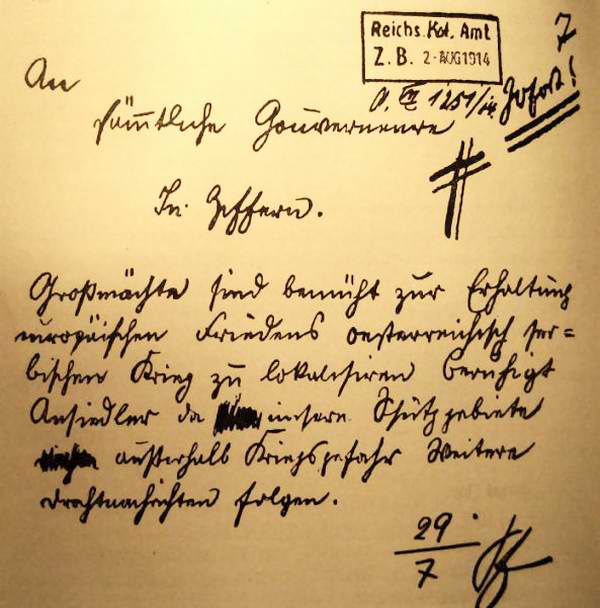 7
Reichs. Kol. Amt
Z.B. 2-AUG 1914
An
sämtliche Gouverneure
Sofort!
In Ziffern.
Großmächte sind bemüht zur Erhaltung
europäischen Friedens oesterreichisch ser=
bischen Krieg zu lokalisiren beruhigt
Ansiedler da unsere Schutzgebiete
ausserhalb Kriegsgefahr Weitere
Drahtnachrichten folgen.
29
7